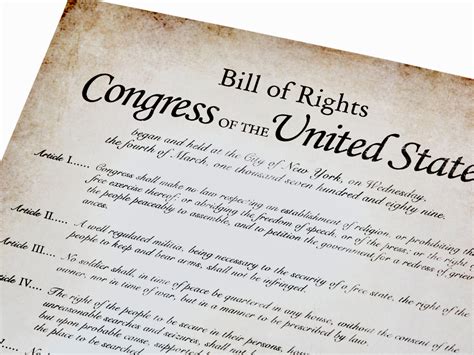 Bill of Rights
Congress OF THE United State
began and held at the City of New York, on Wednesday,
the fourth of March, one thousand seven hundred and eighty nine.
Article I..... Congress shall make no law respecting an establishment of religion, or prohibiting the
free exercise thereof; or abridging the freedom of speech, or of the press; or the right
people peaceably to assemble, and to petition the government for a redress of
Article II..... A well regulated militia, being necessary to the security of a free state, the right of the
people to keep and bear arms, shall not be infringed.
Article III.... No soldier shall, in time of peace be quartered in any house, without the consent of the
owner, nor in time of war, but in a manner to be prescribed by law.
Article IV.... The right of the people to be secure in their persons,
unreasonable searches and seizures, shall not be
but upon probable cause, supported
the place to be searched